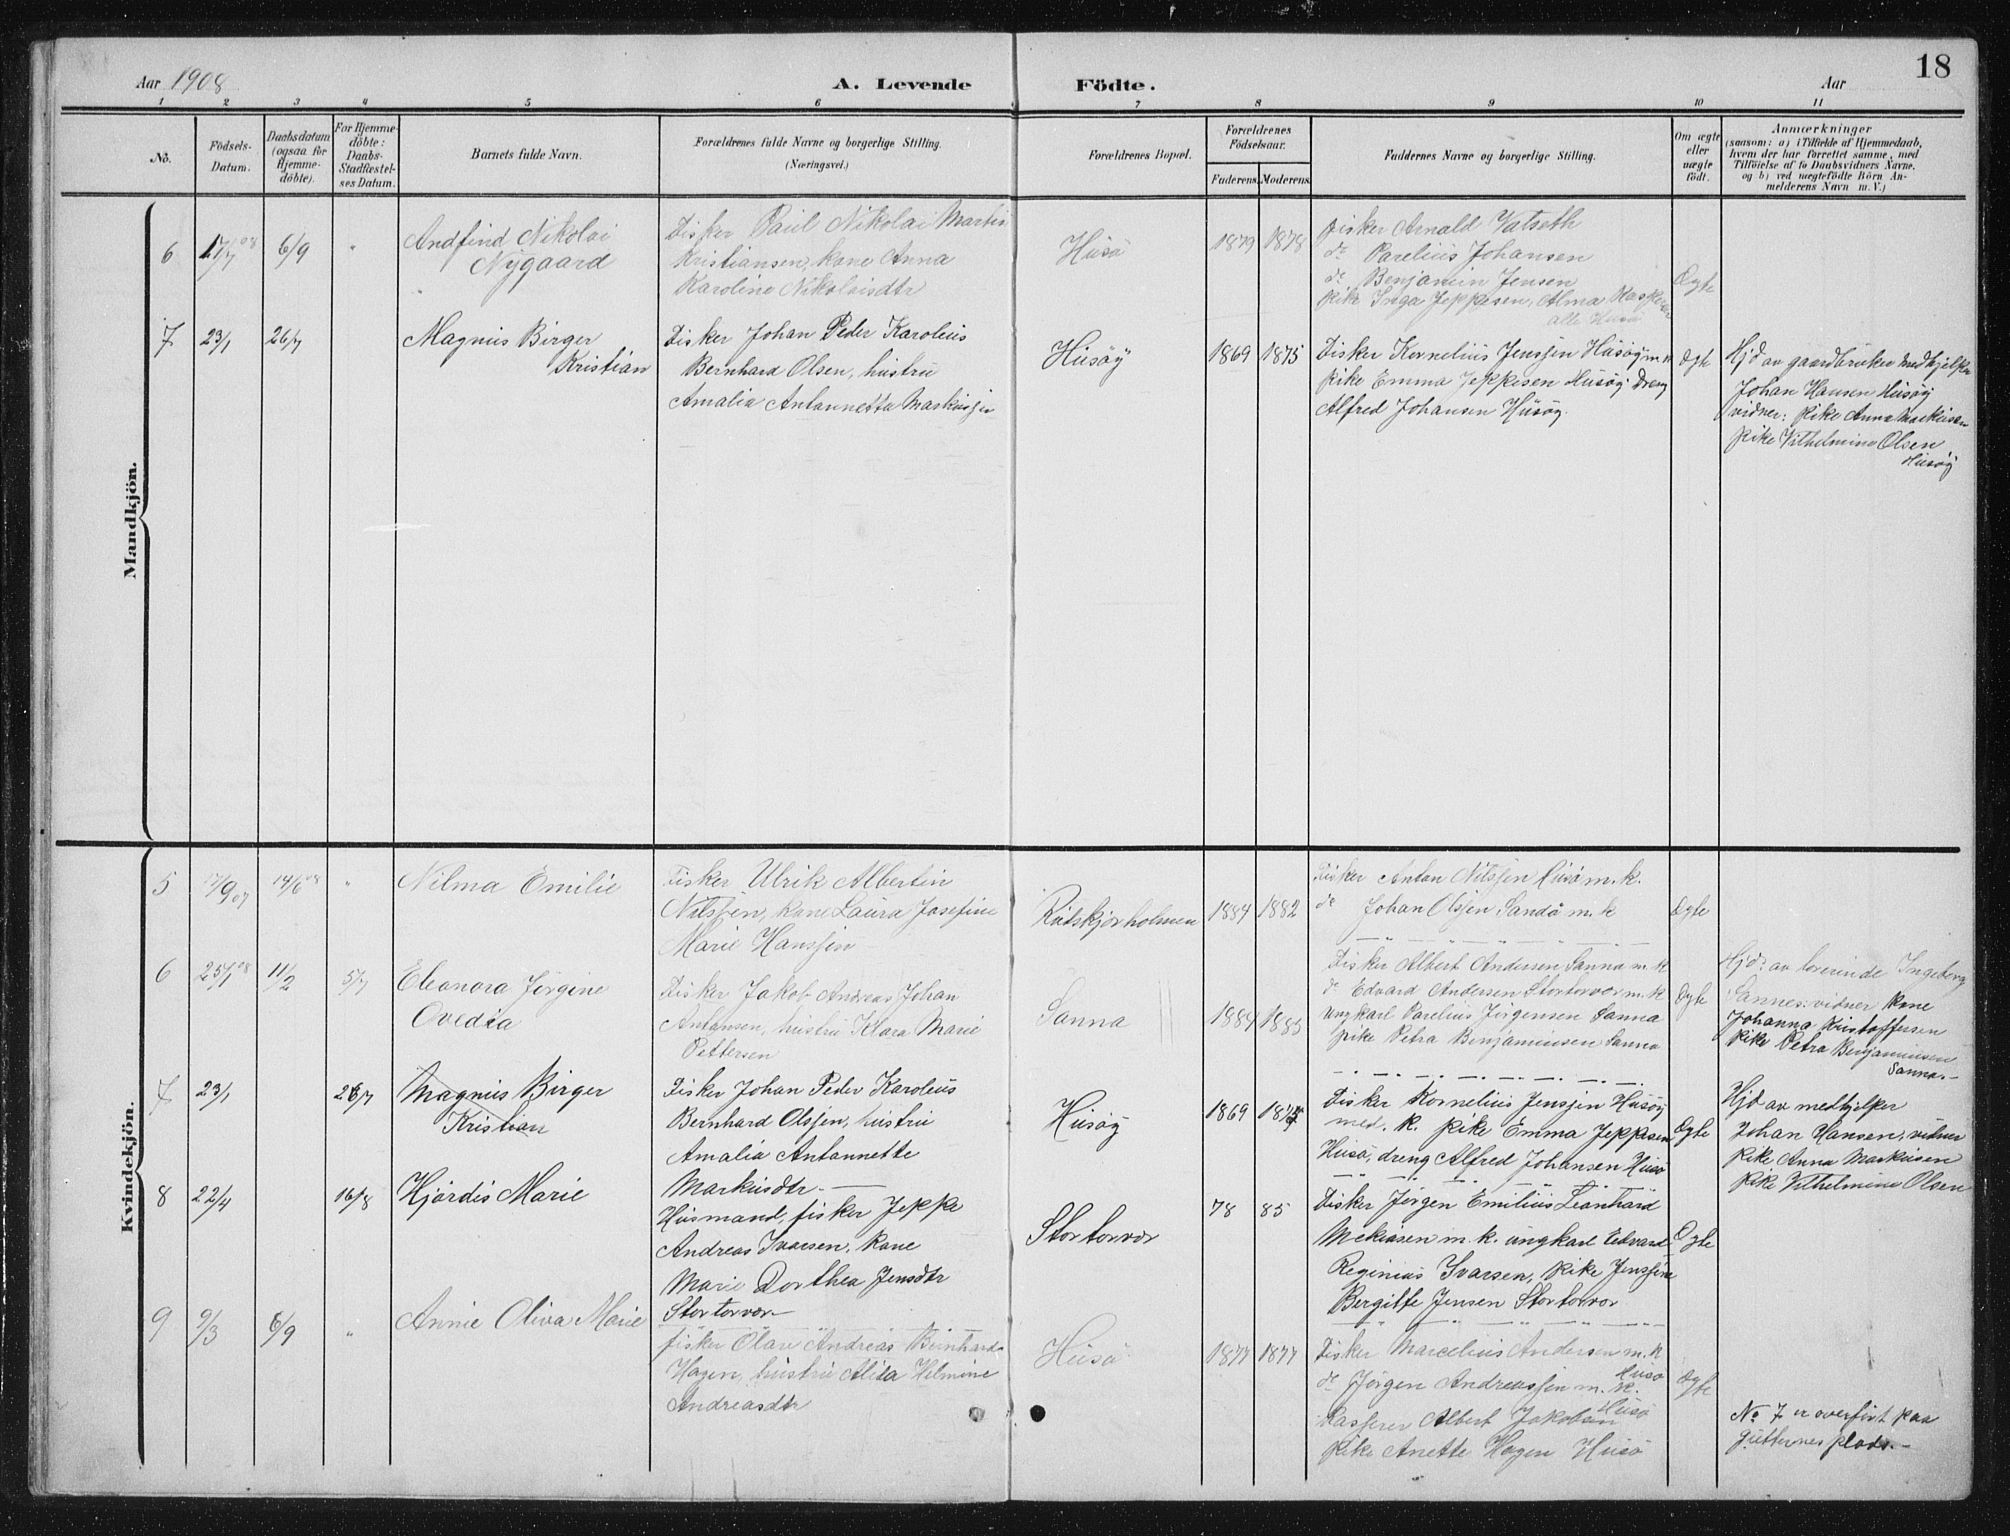 18
Aar 1908
A. Levende Födte.
Aar
1 2 3 4 5 6 7 8 9 10 11
No.
Födsels-Datum.
Daabsdatum (ogsaa for Hjemme-döbte).
For Hjemme-döbte: Daabs-Stadfæstel-ses Datum.
Barnets fulde Navn.
Forældrenes fulde Navne og borgerlige Stilling.
(Næringsvei.)
Forældrenes Bopæl.
Forældrenes Födselsaar.
Faderens. Moderens.
Faddernes Navne og borgerlige Stilling.
Om ægte eller uægte födt.
Anmærkninger
(saasom: a) i Tilfælde af Hjemmedaab,
hvem der har forrettet samme, med
Tilföielse af to Daabsvidners Navne,
og b) ved uægtefödte Börn An-
melderens Navn m. V.)
Mandkjön.
6 17/7 08 6/9 " Andfind Nikolai
Nygaard
Fisker Paul Nikolai Martin
Kristiansen, kone Anna
Karoline Nikolaisdtr
Husö
1879 1878
Fisker Arnald Vatseth
do Parelius Johansen
do Benjamin Jensen
pike Inga Jeppesen, Alma Kasper
alle Husö
Ægte
7 23/1 26/7
Magnus Birger
Kristian
Fisker Johan Peder Karolius
Bernhard Olsen, hustru
Amalia Antannetta Markussen
Husöy
1869 1875
Fisker Kornelius Jenssen Husöy m. k
pike Emma Jeppesen Husöy Dreng
Alfred Johansen Husöy.
Ægte
Hjd av gaardbruker medhjelper
Johan Hansen Husöy
vidner: pike Anna Markusen
pike Vilhelmine Olsen
Husöy
Kvindekjön.
5 17/9 07 14/6 08 " Nilma Emilie
Fisker Ulrik Albertin
Nilssen, kone Laura Josefine
Marie Hanssen
Rödskjærholmen
1884 1882
Fisker Anton Nilssen Husö m. k.
do Johan Olssen Sandö m. k
Ægte
6 25/1 08 11/2 5/7
Eleonora Jörgine
Ovedia
Fisker Jakob Andreas Johan
Antonsen, hustru Klara Marie
Pettersen
Sanna
1884 1885
Fisker Albert Andersen Sanna m. k
do Edvard Andersen Stortorvær m. k
ungkarl Parelius Jörgensen Sanna
pike Petra Benjaminsen Sanna
Ægte
Hjd. av lærerinde Ingeborg
Sannes: vidner kone
Johanna Kristoffersen
pike Petra Benjaminsen
Sanna.
7 23/1 26/7
Magnus Birger
Kristian
Fisker Johan Peder Karolius
Bernhard Olssen, hustru
Amalia Antannette
Markusdtr.
Husöy
1869 1875
Fisker Kornelius Jenssen Husöy
med. k. pike Emma Jeppesen
Husö, dreng Alfred Johansen Husö
Ægte
Hjd av medhjelper
Johan Hansen, vidner
pike Anna Markusen
pike Vilhelmine Olsen
8 22/4 16/8
Hjördis Marie
Husmand, fisker Jeppe
Andreas Ivarsen, kone
Marie Dorthea Jensdtr
Stortorvær
Stortorvær
78 85
Fisker Jörgen Emilius Leonhard
Mekiasen m. k. ungkarl Edvard
Reginius Ivarsen, pike Jenssine
Bergitte Jensen Stortorvær
Ægte
9 9/3 6/9 "
Annie Oliva Marie
fisker Olav Andreas Bernhard
Hagen, hustru Alida Helmine
Andreasdtr
Husö
1877 1877
Fisker Marcelius Andersen m. k
Husö
do Jörgen Andreassen m. k.
Husö
Kasserer Albert Jakobsen
pike Anette Hagen Husö
Ægte
No 7 er overfört paa
gutternes plads.